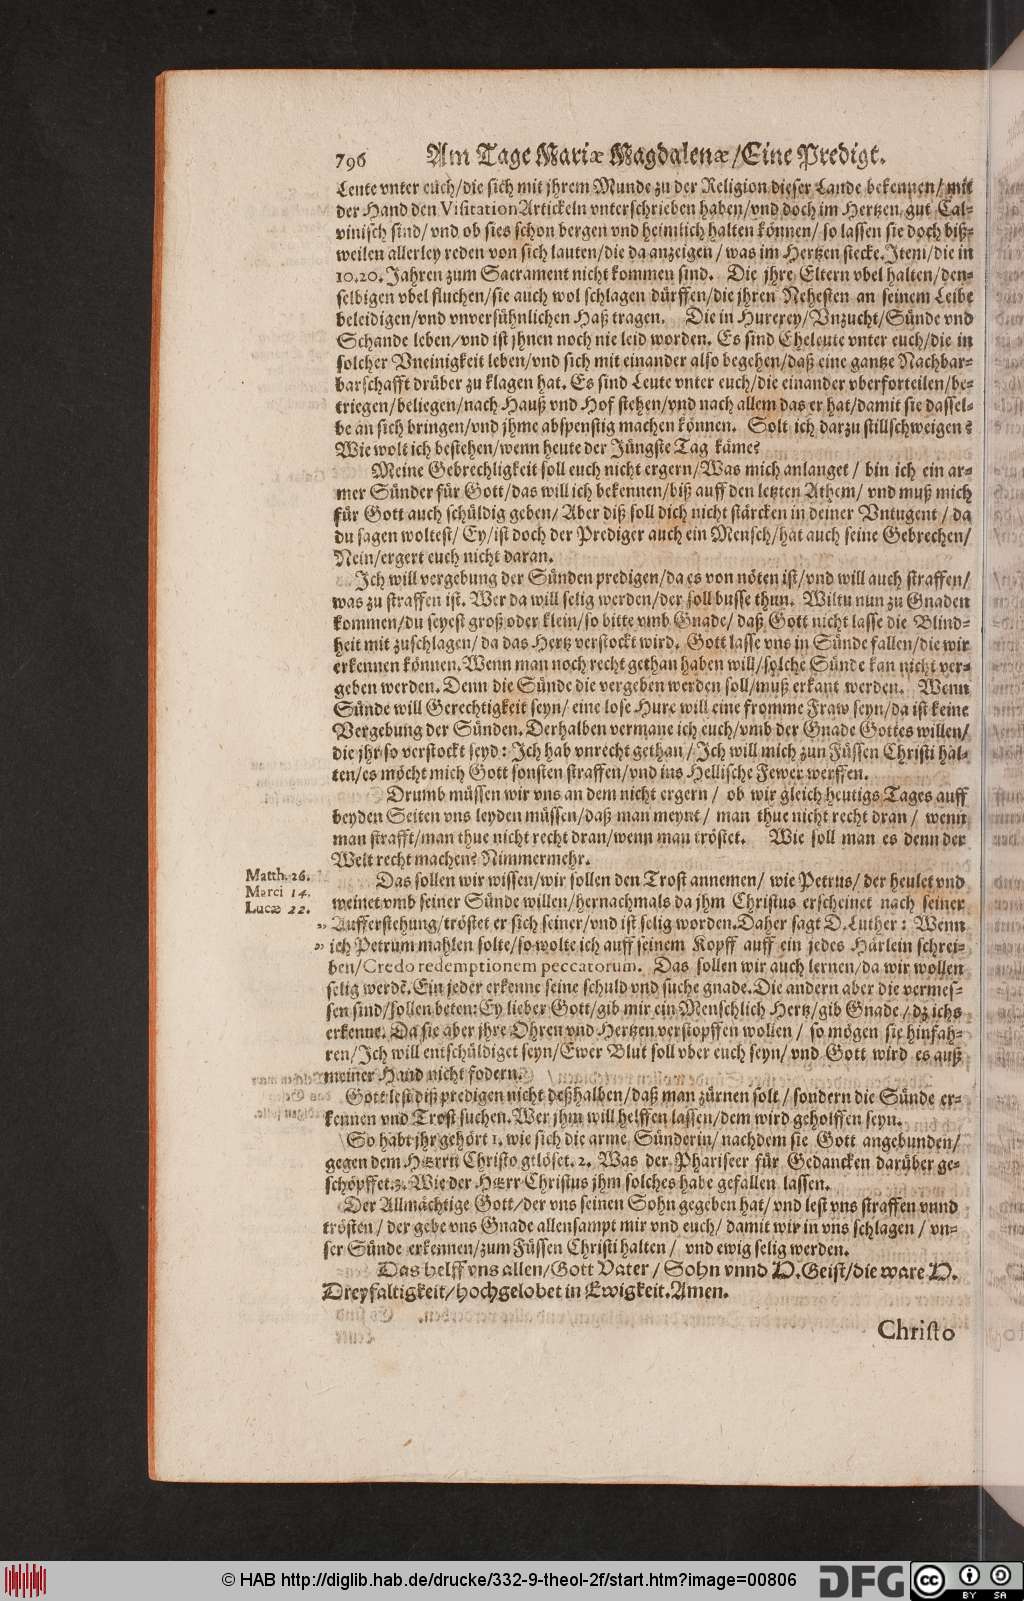 796 Am Tage Mariæ Magdalenæ/Eine Predigt.
Leute vnter euch/die sich mit jhrem Munde zu der Religion dieser Lande bekennen/mit
der Hand den Visitation Artickeln vnterschrieben haben/vnd doch im Hertzen gut Cal-
vinisch sind/vnd ob sies schon bergen vnd heimlich halten können/so lassen sie doch biß-
weilen allerley reden von sich lauten/die da anzeigen/was im Hertzen stecke. Item/die in
10.20. Jahren zum Sacrament nicht kommen sind. Die jhre Eltern vbel halten/den-
selbigen vbel fluchen/sie auch wol schlagen dürffen/die jhren Nehesten an seinem Leibe
beleidigen/vnd vnversühnlichen Haß tragen. Die in Hurerey/Vnzucht/Sünde vnd
Schande leben/vnd ist jhnen noch nie leid worden. Es sind Eheleute vnter euch/die in
solcher Vneinigkeit leben/vnd sich mit einander also begehen/daß eine gantze Nachbar-
barschafft drüber zu klagen hat. Es sind Leute vnter euch/die einander vberforteilen/be-
triegen/beliegen/nach Hauß vnd Hof stehen/vnd nach allem das er hat/damit sie dassel-
be an sich bringen/vnd jhme abspenstig machen können. Solt ich darzu stillschweigen?
Wie wolt ich bestehen/wenn heute der Jüngste Tag käme?
Meine Gebrechligkeit soll euch nicht ergern/Was mich anlanget/bin ich ein ar-
mer Sünder für Gott/das will ich bekennen/biß auff den letzten Athem/vnd muß mich
für Gott auch schüldig geben/Aber diß soll dich nicht stärcken in deiner Vntugent/da
du sagen woltest/Ey/ist doch der Prediger auch ein Mensch/hat auch seine Gebrechen/
Nein/ergert euch nicht daran.
Ich will vergebung der Sünden predigen/da es von nöten ist/vnd will auch straffen/
was zu straffen ist. Wer da will selig werden/der soll busse thun. Wiltu nun zu Gnaden
kommen/du seyest groß oder klein/so bitte vmb Gnade/daß Gott nicht lasse die Blind-
heit mit zuschlagen/da das Hertz verstockt wird. Gott lasse vns in Sünde fallen/die wir
erkennen können. Wenn man noch recht gethan haben will/solche Sünde kan nicht ver-
geben werden. Denn die Sünde die vergeben werden soll/muß erkant werden. Wenn
Sünde will Gerechtigkeit seyn/eine lose Hure will eine fromme Fraw seyn/da ist keine
Vergebung der Sünden. Derhalben vermane ich euch/vmb der Gnade Gottes willen/
die jhr so verstockt seyd: Ich hab vnrecht gethan/Ich will mich zun Füssen Christi hal-
ten/es möcht mich Gott sonsten straffen/vnd ins Hellische Fewer werffen.
Drumb müssen wir vns an dem nicht ergern/ob wir gleich heutigs Tages auff
beyden Seiten vns leyden müssen/daß man meynt/man thue nicht recht dran/wenn
man strafft/man thue nicht recht dran/wenn man tröstet. Wie soll man es denn der
Welt recht machen? Nimmermehr.
Matth. 26.
Marci 14.
Lucæ 22.
Das sollen wir wissen/wir sollen den Trost annemen/wie Petrus/der heulet vnd
weinet vmb seiner Sünde willen/hernachmals da jhm Christus erscheinet nach seiner
„ Aufferstehung/tröstet er sich seiner/vnd ist selig worden. Daher sagt D. Luther: Wenn
„ ich Petrum mahlen solte/so wolte ich auff seinem Kopff auff ein jedes Härlein schrei-
ben/Credo redemptionem peccatorum. Das sollen wir auch lernen/da wir wollen
selig werdē. Ein jeder erkenne seine schuld vnd suche gnade. Die andern aber die vermes-
sen sind/sollen beten: Ey lieber Gott/gib mir ein Menschlich Hertz/gib Gnade/dz ichs
erkenne. Da sie aber jhre Ohren vnd Hertzen verstopffen wollen/so mögen sie hinfah-
ren/Ich will entschüldiget seyn/Ewer Blut soll vber euch seyn/vnd Gott wird es auß
meiner Hand nicht fodern.
Gott lest diß predigen nicht deßhalben/daß man zürnen solt/sondern die Sünde er-
kennen vnd Trost suchen. Wer jhm will helffen lassen/dem wird geholffen seyn.
So habt jhr gehört 1. wie sich die arme Sünderin/nachdem sie Gott angebunden/
gegen dem HErrn Christo gelöset. 2. Was der Phariseer für Gedancken darüber ge-
schöpffet. 3. Wie der HErr Christus jhm solches habe gefallen lassen.
Der Allmächtige Gott/der vns seinen Sohn gegeben hat/vnd lest vns straffen vnnd
trösten/der gebe vns Gnade allensampt mir vnd euch/damit wir in vns schlagen/vn-
ser Sünde erkennen/zum Füssen Christi halten/vnd ewig selig werden.
Das helff vns allen/Gott Vater/Sohn vnnd H. Geist/die ware H.
Dreyfaltigkeit/hochgelobet in Ewigkeit. Amen.
Christo
© HAB http://diglib.hab.de/drucke/332-9-theol-2f/start.htm?image=00806
DFG
cc BY SA